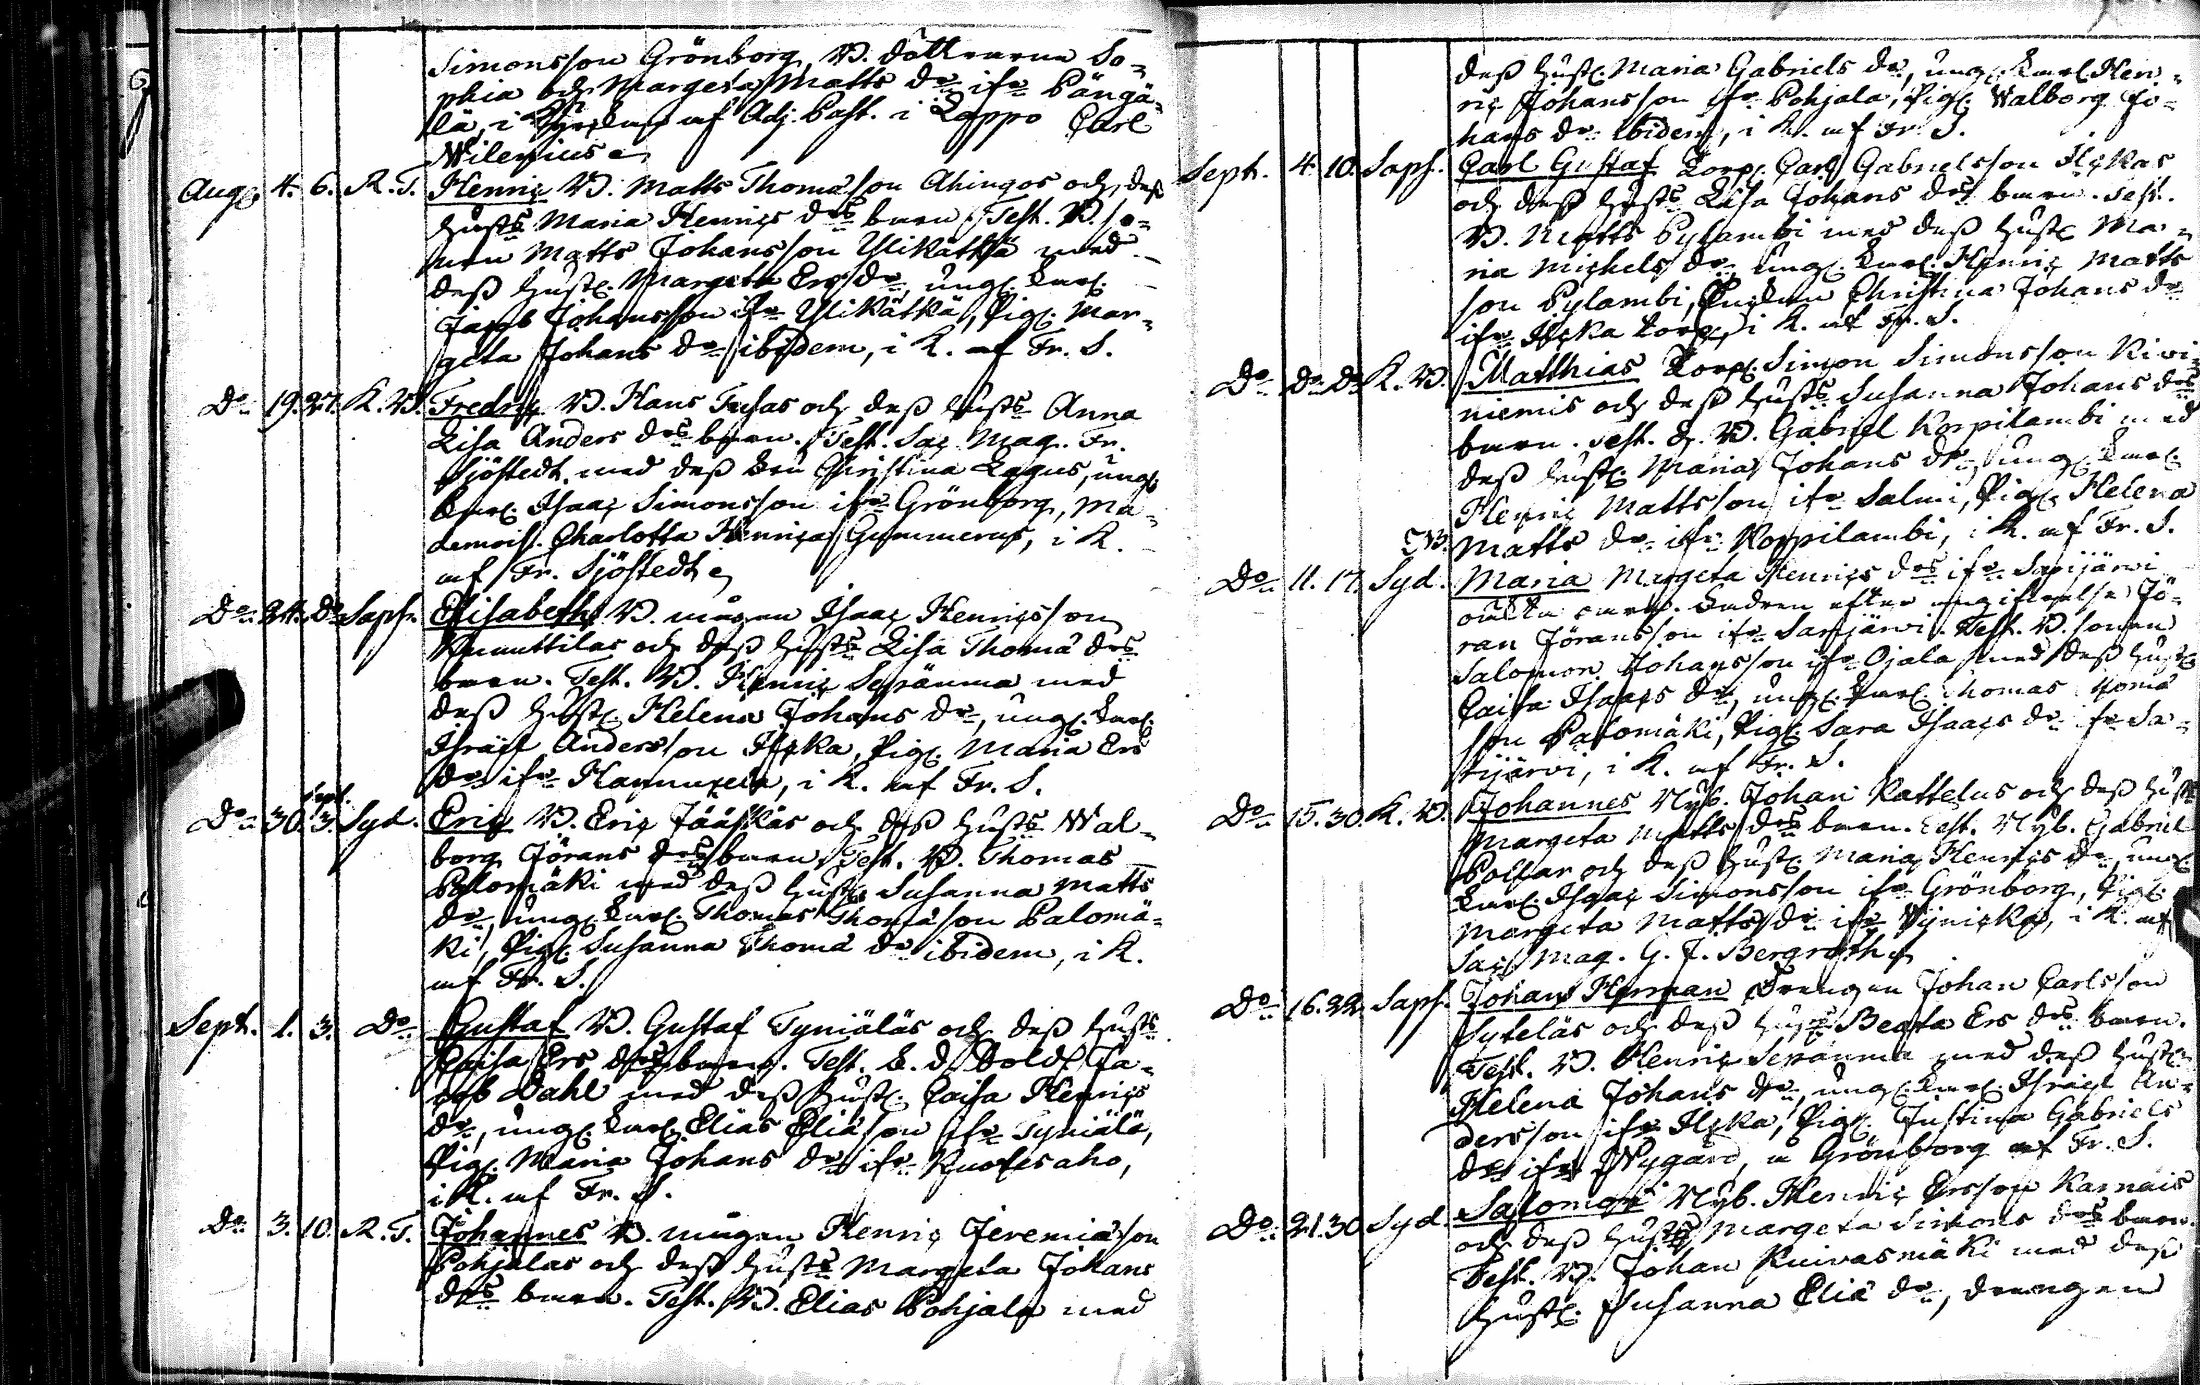 Simonsson Grönborg, B. döttrarna So-
phia och Margeta Matts dr ifr Pängä-
lä, i af Adj. Past. i Lappo Carl
Wilenius
Aug. 4. 6. R. T. Henric B. Matts Thomasson Ahingos och deß
hustrs Maria Henrics drs barn. Test. B. so-
nen Matts Johansson Ylikätkä med
deß hust. Margeta Ers dr, ung. karl.
Jacob Johansson ifr Ylikätkä, Pig. Mar-
geta Johans dr ibidem, i K. af Fr. S.
Do 19. 27. K. B. Fredric B. Hans och deß hustrs Anna
Lisa Anders drs barn. Test. Sac. Mag. Fr.
Sjöstedt med deß Fru Christina Lagus, ung.
karl. Isaac Simonsson ifr Grönborg, Ma-
demois. Charlotta Henrica Gummerus, i K.
af Fr. Sjöstedt
Do 24. Do Saph. Elisabeth B. mågen Isaac Henricsson
Knuuttilas och deß hustrs Lisa Thomæ drs
barn. Test. B. Henric Seppänmä med
deß hust. Helena Johans dr, ung. karl.
Israel Andersson Ilcka, Pig. Maria Ers
dr ifr Hannuxela, i K. af Fr. S.
Do 30. Sept. 3. Syd. Eric B. Eric Jääskäs och deß hustrs Wal-
borg Jörans drs barn. Test. B. Thomas
Palomäki med deß hust. Susanna Matts
dr, ung. karl. Thomas Thomasson Palomä-
ki, Pig. Susanna Thomæ dr ibidem, i K.
af Fr. S.
Sept. 1. 3. Do Gustaf B. Gustaf Tyniäläs och deß hustrs
Caisa Ers drs barn. Test. Sold. Ja-
cob Dahl med deß hust. Caisa Henrics
dr, ung. karl. Elias Eliasson ifr Tyniälä,
Pig. Maria Johans dr ifr Kuofesaho,
i K. af Fr. S.
Do 3. 10. R. T. Johannes B. mågen Henric Jeremiæson
Pohjalas och deß hustrs Margeta Johans
drs barn. Test. B. Elias Pohjala med
deß hust. Maria Gabriels dr, ung. karl. Hen-
ric Johansson ifr Pohjala, Pig. Walborg Jo-
hans dr ibidem, i K. af Fr. S.
Sept. 4. 10. Saph. Carl Gustaf Torp. Carl Gabrielsson Ilckas
och deß hustrs Lisa Johans drs barn. Test.
B. Matts Pylambi med deß hust. Ma-
ria Michels dr, ung. karl. Henric Matts
son Pylambi, Christina Johans dr
ifr Ilcka torp, i K. af Fr. S.
Do Do Do K. B. Matthias Torp. Simon Simonsson Kivi-
niemis och deß hustrs Susanna Johans drs
barn. Test. B. Gabriel Korpilambi med
deß hust. Maria Johans dr, ung. karl.
Henric Mattsson ifr Salmi, Pig. Helena
NB. Matts dr ifr Korpilambi, i K. af Fr. S.
Do 11. 17. Syd. Maria Margeta Henrics drs ifr Sarijärvi
oäkta barn. fadren efter angifvelse Jö-
ran Jöransson ifr Sarijärvi. Test. B. sonen
Salomon Johansson ifr Ojala med deß hust.
Caisa Isaacs dr, ung. karl. Thomas Thomæ
son Palomäki, Pig. Sara Isaacs dr ifr Sa-
rijärvi, i K. af Fr. S.
Do 15. 30. K. B. Johannes Nyb. Johan Kattelus och deß hustrs
Margeta Matts drs barn. Test. Nyb. Gabriel
och deß hust. Maria Henrics dr, ung.
karl. Isaac Simonsson ifr Grönborg, Pig.
Margeta Matts dr ifr i K. af
Sac. Mag. G. J. Bergroth
Do 16. 22. Saph. Johan Herman Drengen Johan Carlsson
Syteläs och deß hustrs Beata Ers drs barn.
Test. B. Henric Sepänmä med deß hust.
Helena Johans dr, ung. karl. Israel An-
dersson ifr Ilcka, Pig. Justina Gabriels
dr ifr Nygård, a Grönborg af Fr. S.
Do 21. 30. Syd. Salomon Nyb. Henric Ersson Karnais
och deß hustrs Margeta Simons drs barn.
Test. B. Johan Kuivasmäki med deß
hust. Susanna Eliæ dr, drengen